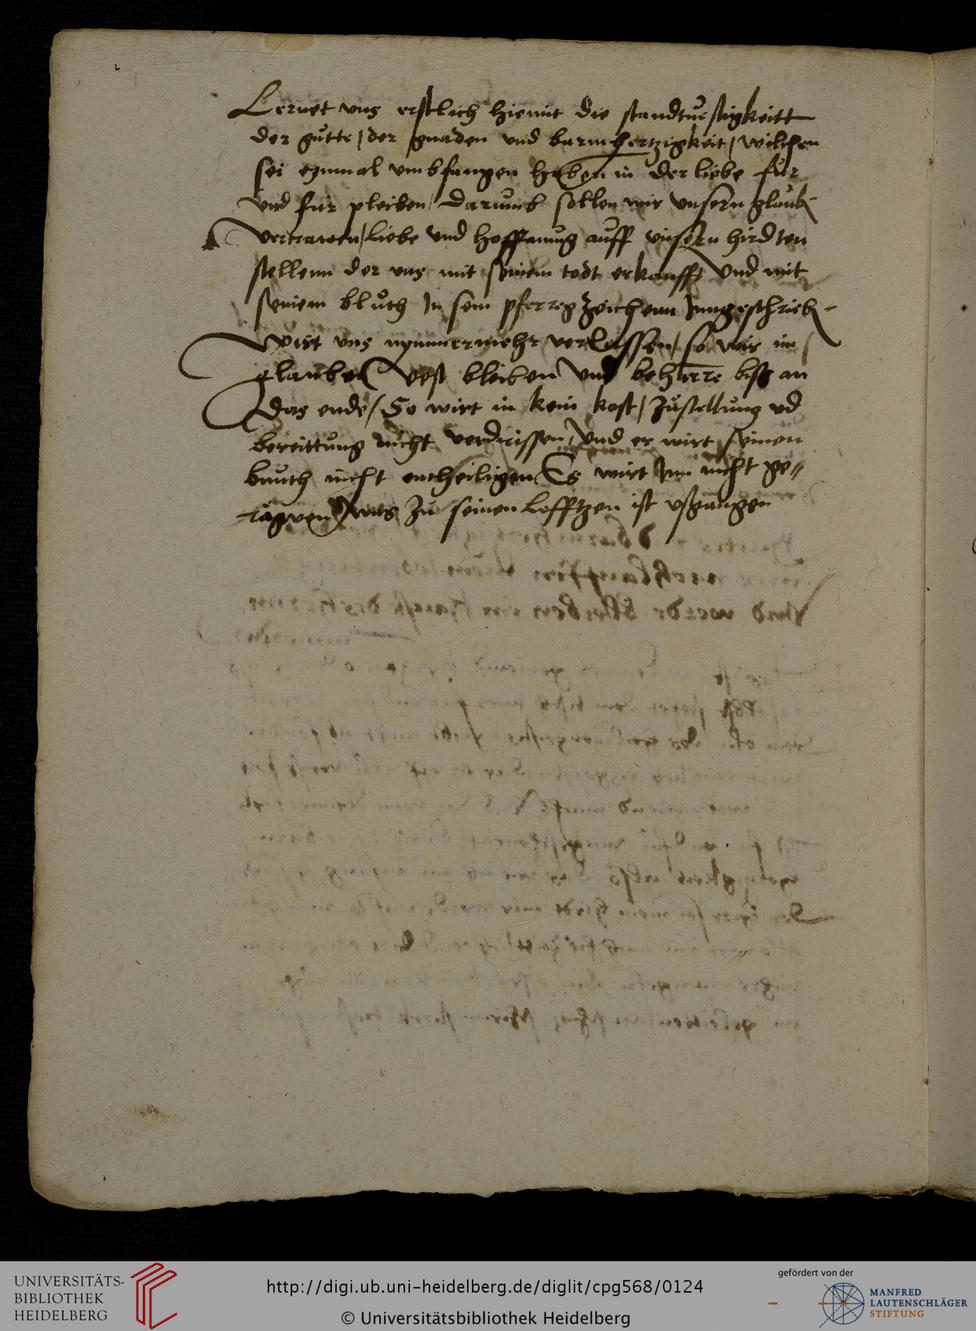 Lernet vns erstlich hiemit die standtuestigkeitt
der gütte / der gnaden vnd barmhertzigkeit / wilchen
sei eynmal vmbfangen haben in der liebe für
vnd für pleiben / Darumb sollen wir vnsern glaub-
vertrawen / Liebe vnd hoffnung auff vnsern hirdten
stellenn der vns mit seinem todt erkaufft vnd mit
seinem blutg In sein pferreg zeichenn Inngeschrieb-
Wirt vns nymmermehr verlassen / so wir im
glauben vest bleiben vnd beharre biß an
das ende / So wirt in kein kost / Züstellung vd
bereittung nicht verdrissen / vnd er wirt seinen
bnuth nicht entheiligen Es wirt Im nicht ge-
rägven was zü seinen Lefftzen ist vßgangen
UNIVERSITÄTS-
BIBLIOTHEK
HEIDELBERG
http://digi.ub.uni-heidelberg.de/diglit/cpg568/0124
© Universitätsbibliothek Heidelberg
gefördert von der
MANFRED
LAUTENSCHLÄGER
STIFTUNG